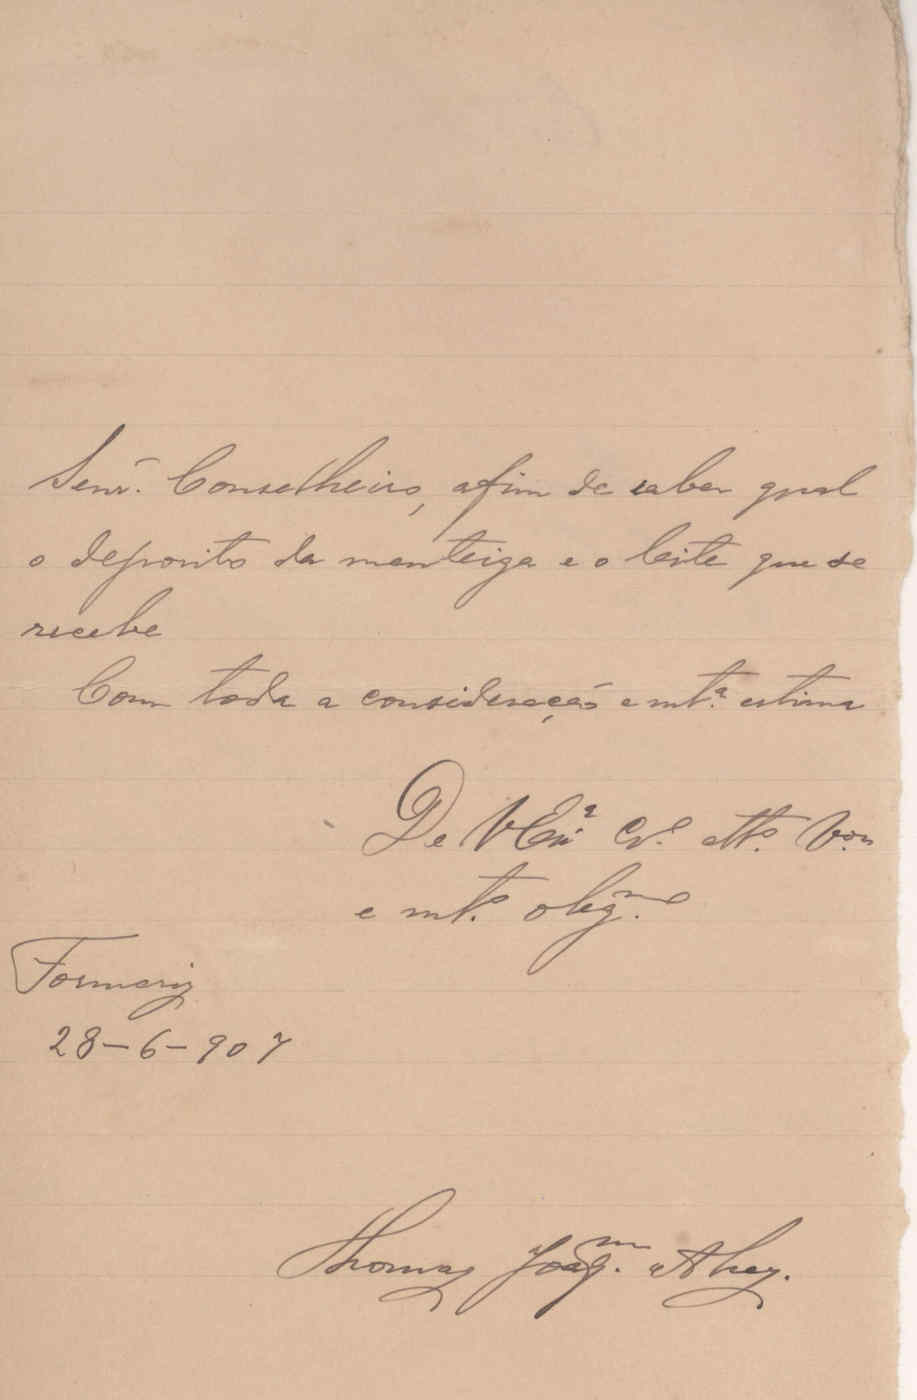 Senr. Conselheiro, afim de saber qual
o deposito da manteiga e o leite que se
recebe
Com toda a consideração e mtª. estima
De V Exª Crº. attº. Vor
e mtº. obgmo
Formariz
28-6-907
Thomaz Joaqm.